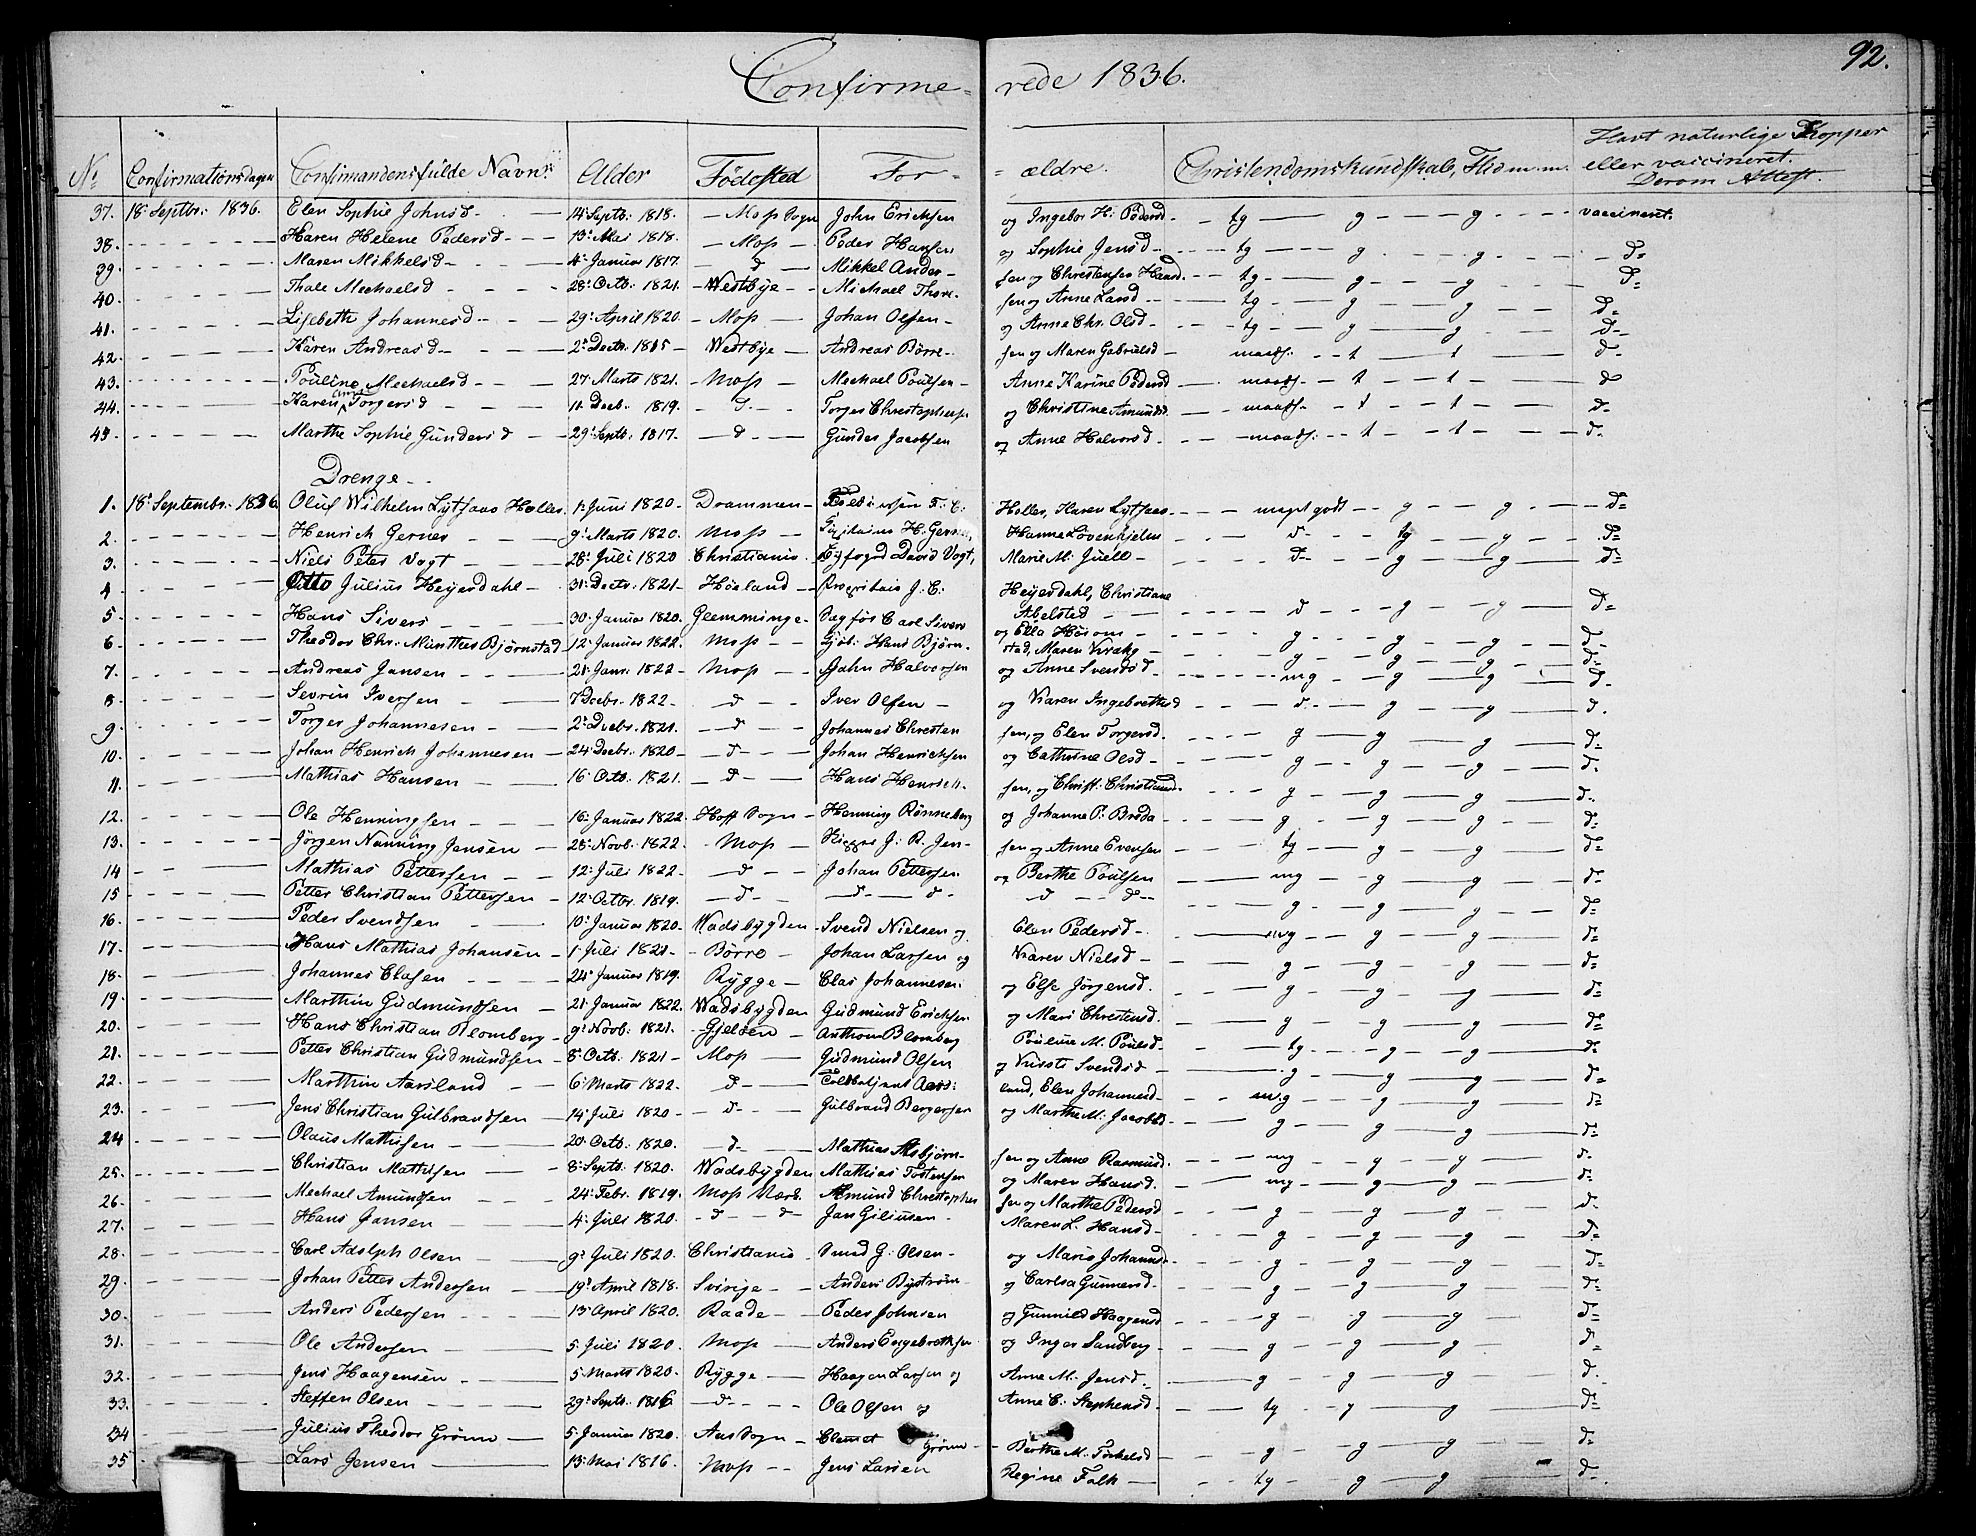 92.
Confirme- rede 1836.
No Confirmationsdagen Confirmandens fulde Navn Alder Födested For- ældre. Christendomskundskab, Flid m.m. Havt naturlige Kopper
eller vaccineret.
Derom Attest.
37. 18 Septbr: 1836. Elen Sophie Johnsd. 14 Septb. 1818. Moss Sogn John Ericksen og Ingebor H: Pedersd tg g g vaccineret.
38. Karen Helene Pedersd 13 Mai 1818. Moss Peder Hansen og Sophie Jensd tg g g d=
39. Maren Mikkelsd 4 Januar 1817. d Mikkel Ander- sen og Christense Hansd. tg g g d=
40. Thale Mechaelsd 28 Octb. 1821. Westbye Michael Thore- sen og Anne Larsd tg g g d=
41. Lisebeth Johannesd 29 April 1820. Moss Johan Olsen og Anne Chr. Olsd tg g g d=
42. Karen Andreasd 2 Decbr. 1815 Westbye Andreas Börre- sen og Maren Gabrielsd maads. t t d
43. Pouline Mechaelsd 27 Marts 1821. Moss Mechael Poulsen Anne Karine Pedersd maads. t t d
44. Karen Torgersd 11 Decb. 1819. d Torger Christophers og Christine Amundsd. maads. t t d
45. Marthe Sophie Gundersd 29 Septb. 1817. d Gunder Jacobsen og Anne Halvorsd maads. t t d
Drenge
1. 18 Septembr. 1836 Oluf Wilhelm Lytfaas Holler 1 Juni 1820 Drammen F: C: Holler, Karen Lytfaas meget godt g g d=
2. Henrich Gerner 9 Marts 1820. Moss H. Gerner, Hanne Lövenhjelm d tg g d=
3. Niels Peter Vogt 28 Juli 1820 Christiania Byfogd David Vogt, Marie M: Juell d g g d=
4 Otto Julius Heyerdahl 31 Decbr. 1821 Höeland J. C: Heyerdahl, Christiane
Abelsted d g g d=
5 Hans Sivers 30 Januar 1820. Glemminge Carl Sivers og Ella Hösom g g g d
6 Theodor Chr: Munthes Bjørnstad 12 Januar 1822. Moss Hans Bjørn- stad, Maren Krækg g g g d
7. Andreas Jansen 21 Janr. 1822 Moss Jahn Halversen og Anne Svendsd mg g g d
8 Sevrin Iversen 7 Decbr. 1822. d Iver Olsen og Karen Ingebrethsd d g g d.
9. Torger Johannesen 2 Decbr. 1821. d Johannes Christen sen, og Elen Torgersd. g g g d=
10. Johan Henrich Johannesen 24 Decbr. 1820 d Johan Henrichsen og Cathrine Olsd g g g d.
11. Mathias Hansen 16 Octb. 1821. d Hans Henrich- sen, og Christ: Christiansd. g g g d
12. Ole Henningsen 16 Januar 1822. Hoff Sogn Henning Rönneberg og Johanne P: Broda g g g d=
13. Jörgen Nanning Jensen 28 Novb. 1822. Moss J: R. Jen- sen og Anne Evensen tg g g d=
14 Mathias Pettersen 12 Juli 1822. d Johan Pettersen og Berthe Poulsen mg g g d=
15 Petter Christian Pettersen 12 Octbr. 1819. d d d d d g g g d=
16. Peder Svendsen 10 Januar 1820. Wadsbygden Svend Nielsen og Elen Pedersd. mg g g d=
17. Hans Mathias Johansen 1 Juli 1821 Börre Johan Larsen og Karen Nielsd g g g d=
18. Johannes Clasen 24 Januar 1819. Rygge Clas Johannesen og Else Jörgensd. g g g d=
19. Marthin Gudmundsen 21 Januar 1822. Wadsbygden Gudmund Ericksen og Mari Christensd. g g g d=
20. Hans Christian Blomberg 9 Novb. 1821. Gjelöen Anthon Blomberg Pouline M. Poulsd tg g g d=
21. Petter Christian Gudmundsen 8 Octb. 1821 Moss Gudmund Olsen og Kirste Svendsd g g g d=
22. Marthin Aarsland 6 Marts 1822. d Toldbetjent Aars: land, Elen Johannesd mg g g d=
23. Jens Christian Gulbrandsen 14 Juli 1820 d Gulbrand Bergersen og Marthe M: Jacobsd. g g g d=
24 Olaus Mathisen 20 Octb. 1820. d Mathias Asbjørn- sen og Anne Rasmusd. mg g g d
25. Christian Mathisen 8 Septb. 1820. Wadsbygden Mathias Tostensen og Maren Hansd. mg g g d=
26. Mechael Amundsen 24 Febr. 1819. Moss Værk. Amund Christopher sen og Marthe Pedersd g g g d
27. Hans Jansen 4 Juli 1820. d d Jan Giliusen Maren L. Hansd g g g d=
28. Carl Adolph Olsen 9 Juli 1820. Christiania Smed G: Olsen og Maria Johannsd g g g d=
29. Johan Petter Andersen 19 April 1818. Sverige Anders Byström og Carlsa Gunnersd. g g g d=
30. Anders Pedersen 13 April 1820. Raade Peder Johnsen og Gunnild Haagensd g g g d=
31. Ole Andersen 5 Juli 1820. Moss Anders Engebrethsen og Inger Sandberg g g g d=
32. Jens Haagensen 5 Marts 1820. Rygge Haagen Larsen og Anne M. Jensd. g g g d.
33. Steffen Olsen 29 Septb. 1816 d Ole Olsen og Anne C: Stephensd. tg g g d=
34 Julius Theodor Grönn 5 Januar 1820. Aas Sogn Clemet Grönn Berthe M. Torkelsd g g g d=
35 Lars Jensen 13 Mai 1816. Moss Jens Larsen Regine Falk tg g g d